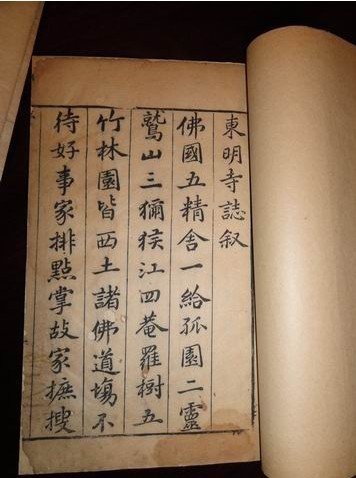 東明寺誌叙
佛國五精舎一給孤園二靈
鷲山三獼猴江四菴羅樹五
竹林園皆西土諸佛道塲不
待好事家排點掌故家摭搜